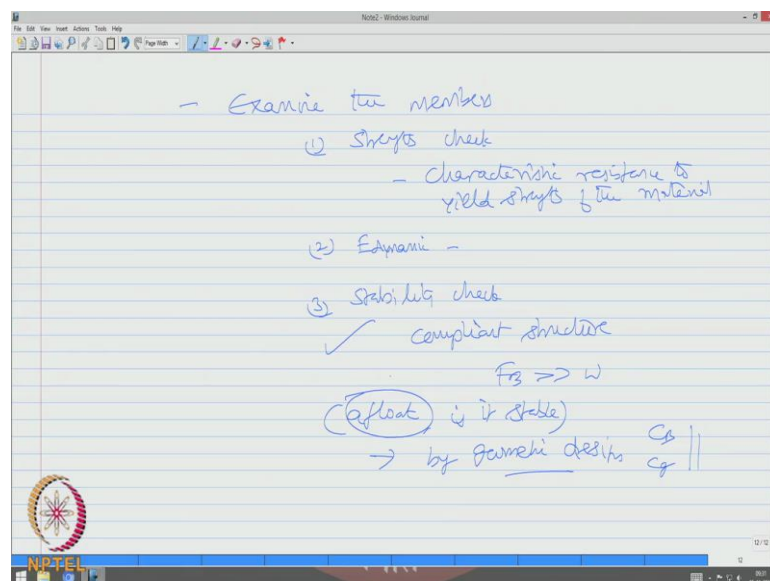 Note2 - Windows Journal
File Edit View Insert Actions Tools Help
Page Width
- Examine the members
(1) Strength check
- characteristic resistance to
yield strength of the material
(2)
(3) Stability check
✓ compliant structure
FB >> W
(afloat, is it stable)
→ by geometric design CB
CG
NPTEL
12 / 12
12
09:31